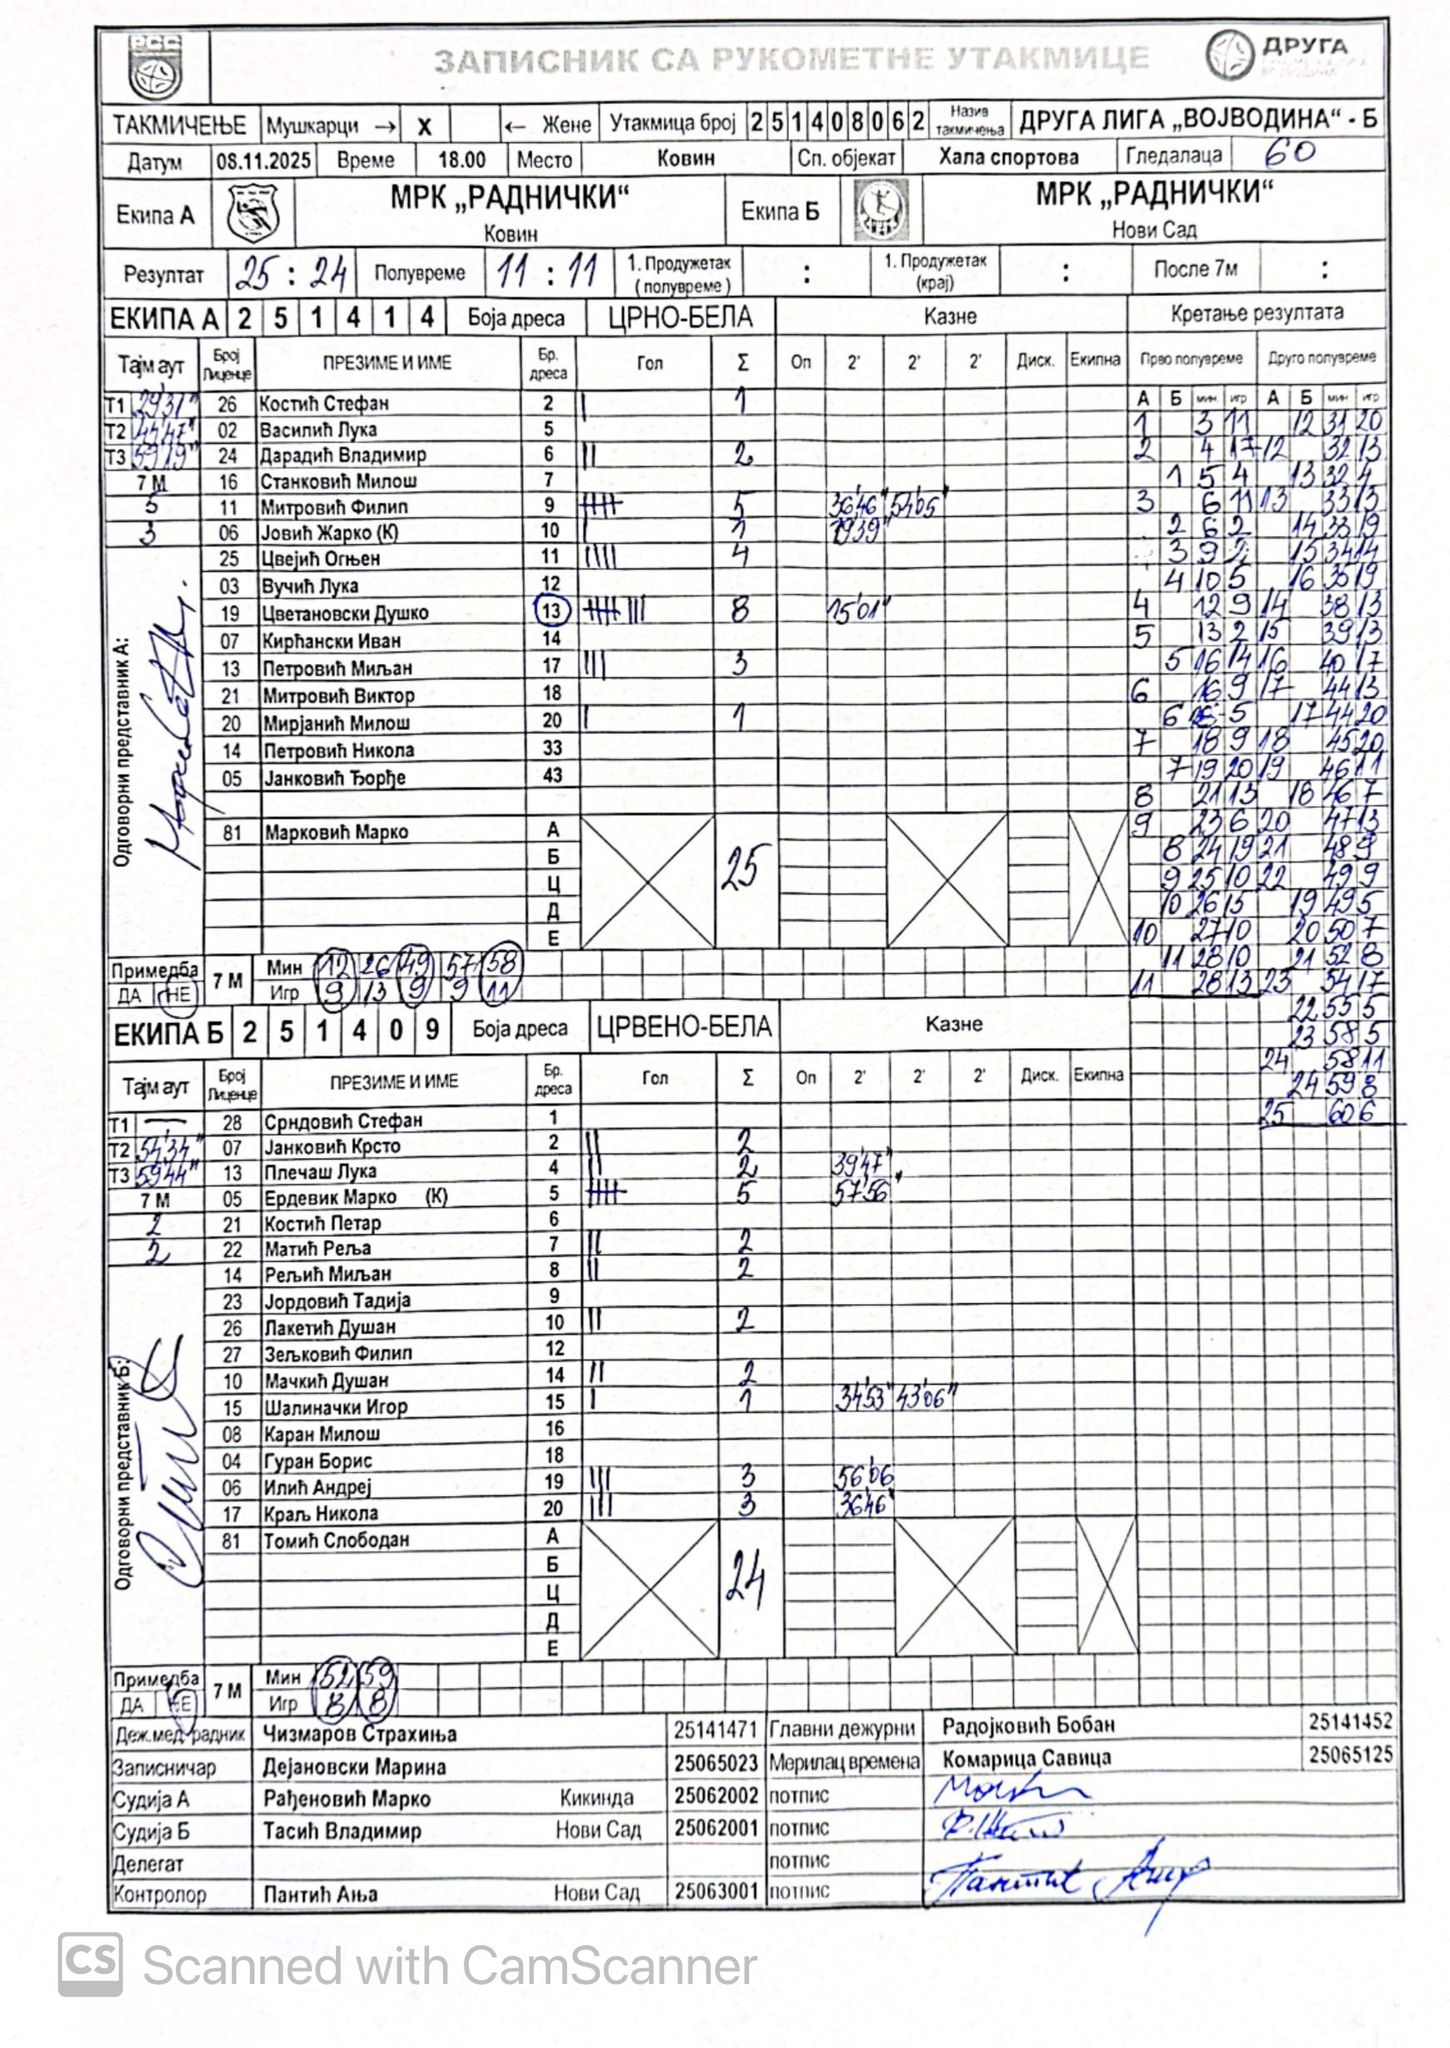 РСС
ЗАПИСНИК СА РУКОМЕТНЕ УТАКМИЦЕ
ДРУГА
ТАКМИЧЕЊЕ Мушкарци → X ← Жене Утакмица број 251408062 Назив такмичења ДРУГА ЛИГА „ВОЈВОДИНА“ - Б
Датум 08.11.2025 Време 18.00 Место Ковин Сп. објекат Хала спортова Гледалаца 60
Екипа А МРК „РАДНИЧКИ“ Ковин Екипа Б МРК „РАДНИЧКИ“ Нови Сад
Резултат 25 : 24 Полувреме 11 : 11 1. Продужетак (полувреме) : 1. Продужетак (крај) : После 7м :
ЕКИПА А 2 5 1 4 1 4 Боја дреса ЦРНО-БЕЛА Казне Кретање резултата
Тајм аут Број Лиценце ПРЕЗИМЕ И ИМЕ Бр. дреса Гол Σ Оп 2' 2' 2' Диск. Екипна Прво полувреме Друго полувреме
А Б мин игр А Б мин игр
Т1 29'31" 26 Костић Стефан 2 | 1
Т2 44'47" 02 Василић Лука 5
Т3 59'19" 24 Дарадић Владимир 6 || 2
7 М 16 Станковић Милош 7
5 11 Митровић Филип 9 5 36'46" 54'05"
3 06 Јовић Жарко (К) 10 | 1 19'39"
25 Цвејић Огњен 11 |||| 4
03 Вучић Лука 12
19 Цветановски Душко 13 8 15'01"
07 Кирћански Иван 14
13 Петровић Миљан 17 ||| 3
21 Митровић Виктор 18
20 Мирјанић Милош 20 | 1
14 Петровић Никола 33
05 Јанковић Ђорђе 43
81 Марковић Марко А
Б
Ц
Д
Е
25
Одговорни представник А:
1 3 11 12 31 20
2 4 17 12 32 13
1 5 4 13 32 4
3 6 11 13 33 13
2 6 2 14 33 19
3 9 2 15 34 14
4 10 5 16 35 19
4 12 9 14 38 13
5 13 2 15 39 13
5 16 14 16 40 17
6 16 9 17 44 13
6 5 17 44 20
7 18 9 18 45 20
7 19 20 19 46 11
8 21 13 18 46 7
9 23 6 20 47 13
8 24 19 21 48 9
9 25 10 22 49 9
10 26 15 19 49 5
10 27 10 20 50 7
11 28 10 21 52 8
11 28 13 23 54 17
22 55 5
23 58 5
24 58 11
24 59 8
25 60 6
Примедба ДА НЕ 7 М Мин 12 26 49 57 58
Игр 9 13 9 9 11
ЕКИПА Б 2 5 1 4 0 9 Боја дреса ЦРВЕНО-БЕЛА Казне
Тајм аут Број Лиценце ПРЕЗИМЕ И ИМЕ Бр. дреса Гол Σ Оп 2' 2' 2' Диск. Екипна
Т1 — 28 Срндовић Стефан 1
Т2 54'34" 07 Јанковић Крсто 2 || 2
Т3 59'44" 13 Плечаш Лука 4 || 2 39'47"
7 М 05 Ердевик Марко (К) 5 5 57'56"
2 21 Костић Петар 6
2 22 Матић Реља 7 || 2
14 Рељић Миљан 8 || 2
23 Јордовић Тадија 9
26 Лакетић Душан 10 || 2
27 Зељковић Филип 12
10 Мачкић Душан 14 || 2
15 Шалиначки Игор 15 | 1 34'53" 43'06"
08 Каран Милош 16
04 Гуран Борис 18
06 Илић Андреј 19 ||| 3 56'06
17 Краљ Никола 20 ||| 3 36'46"
81 Томић Слободан А
Б
Ц
Д
Е
24
Одговорни представник Б:
Примедба ДА НЕ 7 М Мин 52 59
Игр 8 8
Деж.мед.радник Чизмаров Страхиња 25141471 Главни дежурни Радојковић Бобан 25141452
Записничар Дејановски Марина 25065023 Мерилац времена Комарица Савица 25065125
Судија А Рађеновић Марко Кикинда 25062002 потпис
Судија Б Тасић Владимир Нови Сад 25062001 потпис
Делегат потпис
Контролор Пантић Ања Нови Сад 25063001 потпис Пантић Ања
CS Scanned with CamScanner